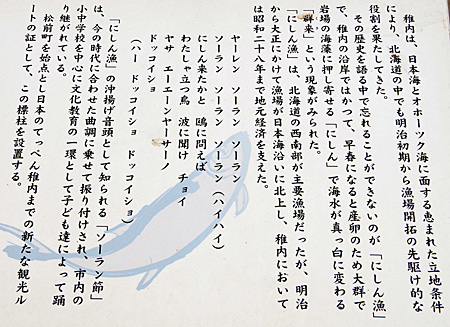 稚内は、日本海とオホーツク海に面する恵まれた立地条件
により、北海道の中でも明治初期から漁場開拓の先駆け的な
役割を果たしてきた。
その歴史を語る中で忘れることができないのが「にしん漁」
で、稚内の沿岸ではかつて、早春になると産卵のため大群で
岩場の海藻に押し寄せる「にしん」で海水が真っ白に変わる
「群来」という現象がみられた。
「にしん漁」は、北海道の西南部が主要漁場だったが、明治
から大正にかけて漁場が日本海沿いに北上し、稚内において
は昭和二十八年まで地元経済を支えた。
ヤーレン ソーラン ソーラン
ソーラン ソーラン ソーラン（ハイハイ）
にしん来たかと 鴎に問えば
わたしゃ立つ鳥 波に聞け チョイ
ヤサ エーエンヤーサーノ
ドッコイショ
（ハー ドッコイショ ドッコイショ）
「にしん漁」の沖揚げ音頭として知られる「ソーラン節」
は、今の時代に合わせた曲調に乗せて振り付けされ、市内の
小中学校を中心に文化教育の一環として子ども達によって踊
り継がれている。
松前町を始点とし日本のてっぺん稚内までの新たな観光ル
ートの証として、この標柱を設置する。